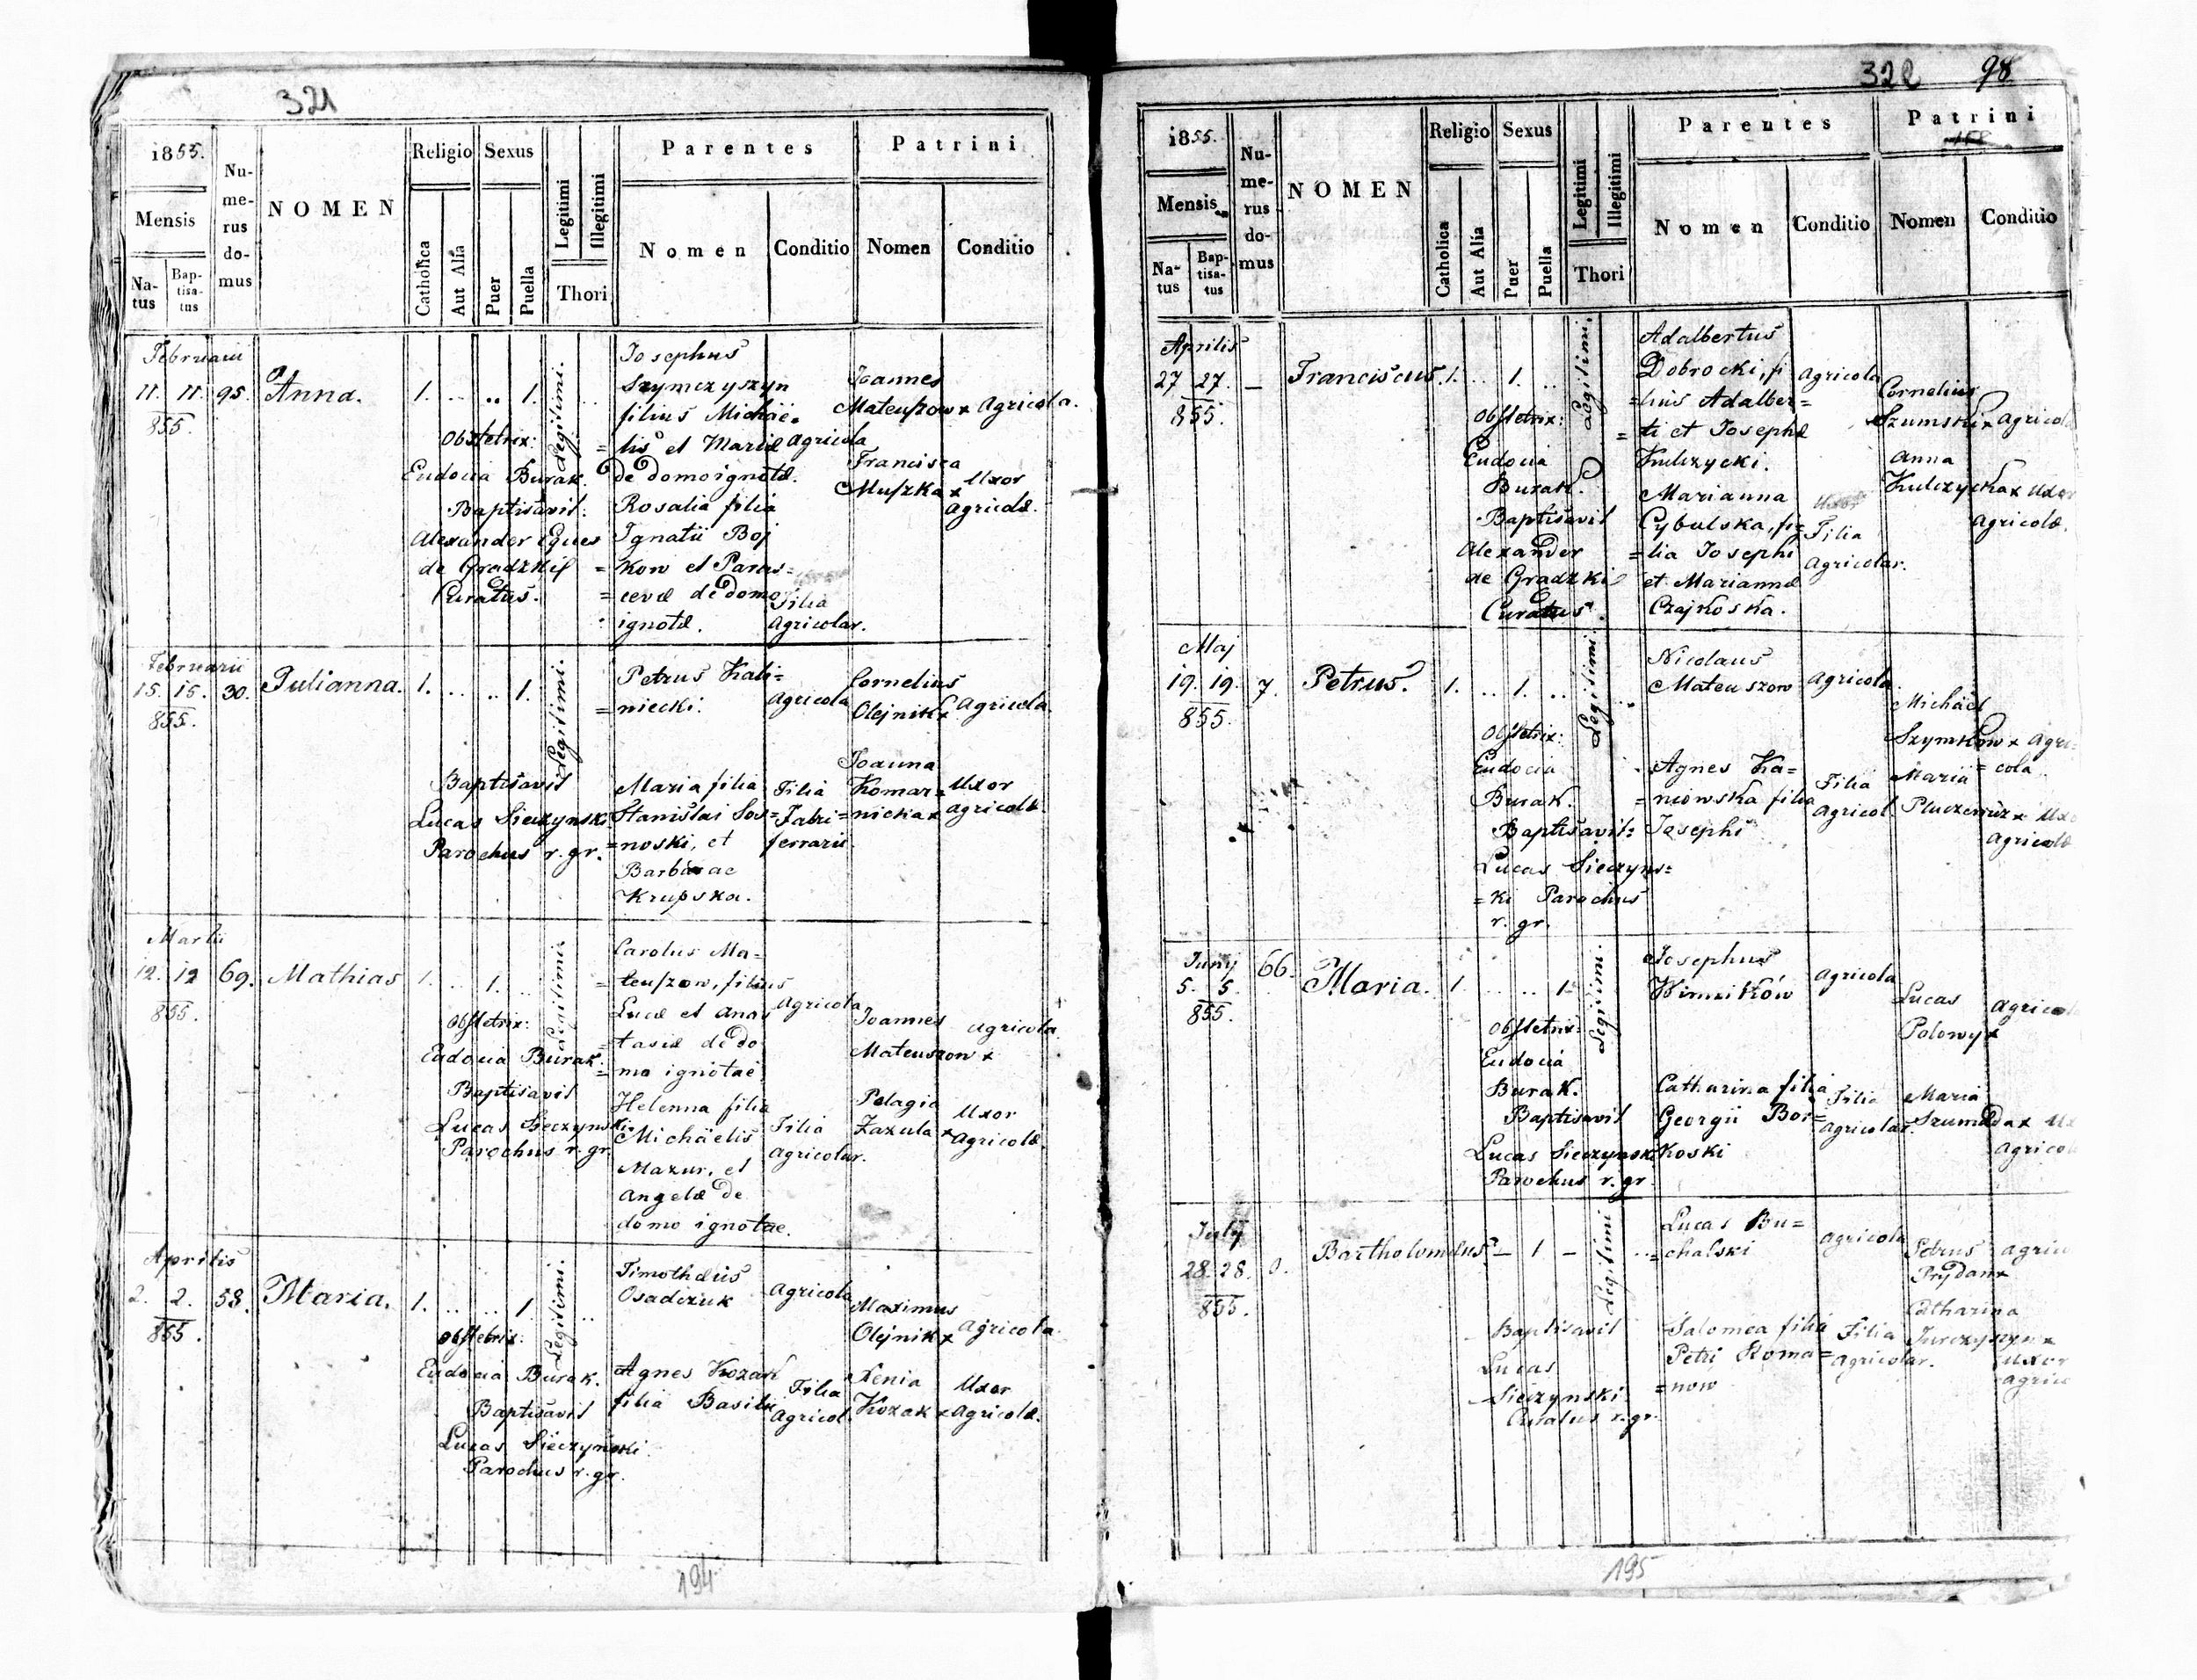 321
1855.
Mensis
Natus
Baptisatus
Numerus domus
NOMEN
Religio
Catholica
Aut Alia
Sexus
Puer
Puella
Legitimi
Illegitimi
Thori
Parentes
Nomen
Conditio
Patrini
Nomen
Conditio
Februarii
11. 11. 95. Anna. 1. .. .. 1. Legitimi. ..
855.
Obstetrix:
Eudocia Burak.
Baptisavit:
Alexander Eques
de Gradzki
Curatus.
Josephus
Szymczyszyn
filius Michäe-
=lis et Mariæ
de domo ignotæ.
Agricola
Rosalia filia
Ignatii Boj
=kow et Paras=
=cevæ de domo
ignotæ.
Filia
Agricolar.
Joannes
Mateuszow x Agricola.
Francisca
Muszka x Uxor
Agricolæ.
Februarii
15. 15. 30. Julianna. 1. .. .. 1. Legitimi.
855.
Baptisavit
Lucas Sieczynski
Parochus r. gr.
Petrus Kali=
=niecki.
Agricola
Maria filia
Stanislai Sos=
=noski, et
Barbarae
Krupska.
Filia
Fabri=
ferrarii.
Cornelius
Olejnik x Agricola.
Joanna
Komar=
nicka x
Uxor
Agricolæ.
Martii
12. 12 69. Mathias 1. .. 1. .. Legitimi.
855.
Obstetrix:
Eudocia Burak.
Baptisavit
Lucas Sieczynski
Parochus r. gr.
Carolus Ma=
=teuszow, filius
Lucæ et Anas
=tasiæ de do
=mo ignotæ
Agricola
Helenna filia
Michäelis
Mazur, et
Angelæ de
domo ignotae.
Filia
Agricolar.
Joannes
Mateuszow x
Agricola.
Pelagia
Zazula x
Uxor
Agricolæ.
Aprilis
2. 2. 58. Maria. 1. .. .. 1 Legitimi. ..
855.
Obstetrix:
Eudocia Burak.
Baptisavit
Lucas Sieczynski
Parochus r. gr.
Timothæus
Osadczuk
Agricola
Agnes Kozak
filia Basilii
Filia
Agricol.
Maximus
Olejnik x Agricola.
Xenia
Kozak x
Uxor
Agricolæ.
194
322 98
1855.
Mensis
Natus
Baptisatus
Numerus domus
NOMEN
Religio
Catholica
Aut Alia
Sexus
Puer
Puella
Legitimi
Illegitimi
Thori
Parentes
Nomen
Conditio
Patrini
Nomen
Conditio
Aprilis
27 27. – Franciscus. 1. .. 1. .. Legitimi.
855.
Obstetrix:
Eudocia
Burak.
Baptisavit
Alexander
de Gradzki
Curatus.
Adalbertus
Dobrocki, fi
=lius Adalber=
=ti et Josephæ
Kulczycki.
Agricola
Marianna
Cybulska, fi=
=lia Josephi
et Mariannæ
Czajkoska.
Filia
Agricolar.
Cornelius
Szumski x Agricola
Anna
Kulczycka x Uxor
Agricolæ.
Maj
19. 19. 7. Petrus. 1. .. 1. .. Legitimi.
855.
Obstetrix:
Eudocia
Burak.
Baptisavit=
Lucas Sieczyns=
=ki Parochus
r. gr.
Nicolaus
Mateuszow
Agricola
Agnes Ka=
=niowska filia
Josephi
Filia
Agricol.
Michäel
Szymkow x Agri=
=cola
Maria
x Uxo
Agricolæ
Juny
5. 5. 66. Maria. 1. .. .. 1. Legitimi.
855.
Obstetrix:
Eudocia
Burak.
Baptisavit
Lucas Sieczynski
Parochus r. gr.
Josephus
Winników
Agricola
Catharina filia
Georgii Boi=
koski
Filia
Agricolar.
Lucas
Polowy x
Agricola
Maria
x
Agricol
July
28. 28. Bartholomæus. – 1 – Legitimi
855.
Baptisavit
Lucas
Sieczynski
Curatus r. gr.
Lucas Bu=
=chalski
Agricola
Salomea filia
Petri Roma=
=now
Filia
Agricolar.
Petrus
Prydan x
Agric
Catharina
Jurczyszyn x
Uxor
Agric
195